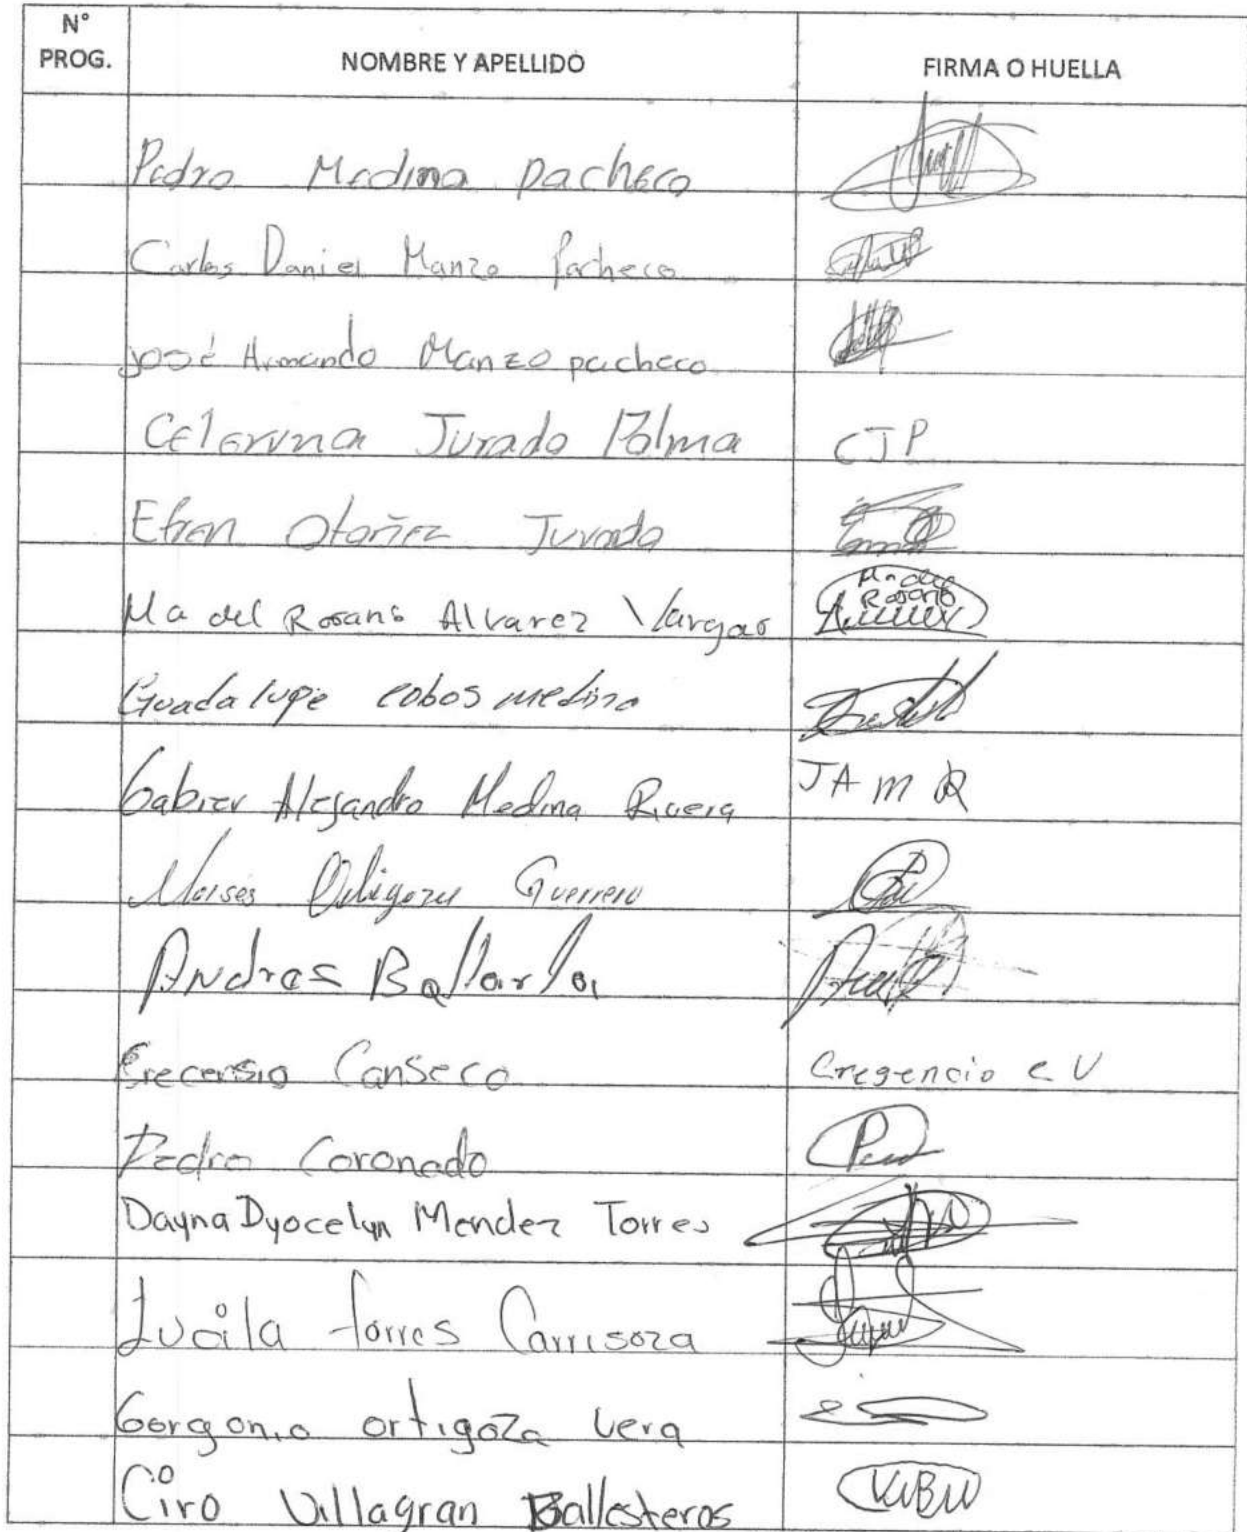 N°
PROG.
NOMBRE Y APELLIDO
FIRMA O HUELLA
Pedro Medina pacheco
Carlos Daniel Manzo Pacheco
José Armando Manzo pacheco
Celerina Jurado Palma CJP
Efren Otañez Jurado
Ma del Rosario Alvarez Vargas Ma del Rosario
Guadalupe cobos medina
Gabriel Alejandro Medina Rivera JAMR
Moisés Ortigoza Guerrero
Andres Ballarla
Crecensio Canseco Cregencio c V
Pedro Coronado
Dayna Dyocelyn Mendez Torres
Lucila Torres Carrisoza
Gorgonio ortigoza Vera
Ciro Villagran Ballesteros